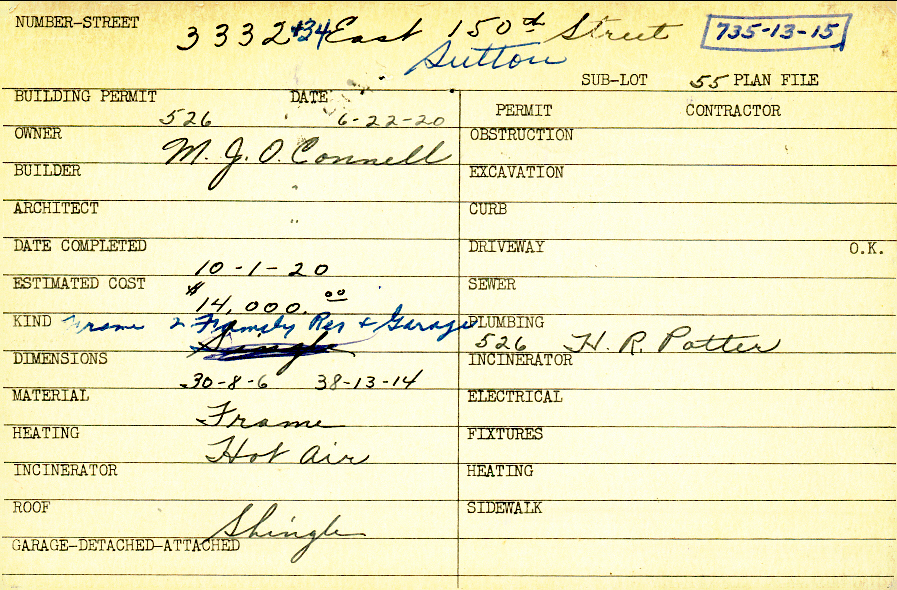 NUMBER-STREET 3332+34 East 150th Street 735-13-15
Sutton
SUB-LOT 55 PLAN FILE
BUILDING PERMIT 526 DATE 6-22-20
PERMIT CONTRACTOR
OWNER M. J. O'Connell
OBSTRUCTION
BUILDER "
EXCAVATION
ARCHITECT "
CURB
DATE COMPLETED 10-1-20
DRIVEWAY O.K.
ESTIMATED COST $14,000.00
SEWER
KIND Frame 2 Family Res + Garage
PLUMBING 526 H. R. Potter
DIMENSIONS 30-8-6 38-13-14
INCINERATOR
MATERIAL Frame
ELECTRICAL
HEATING Hot Air
FIXTURES
INCINERATOR
HEATING
ROOF Shingle
SIDEWALK
GARAGE-DETACHED-ATTACHED